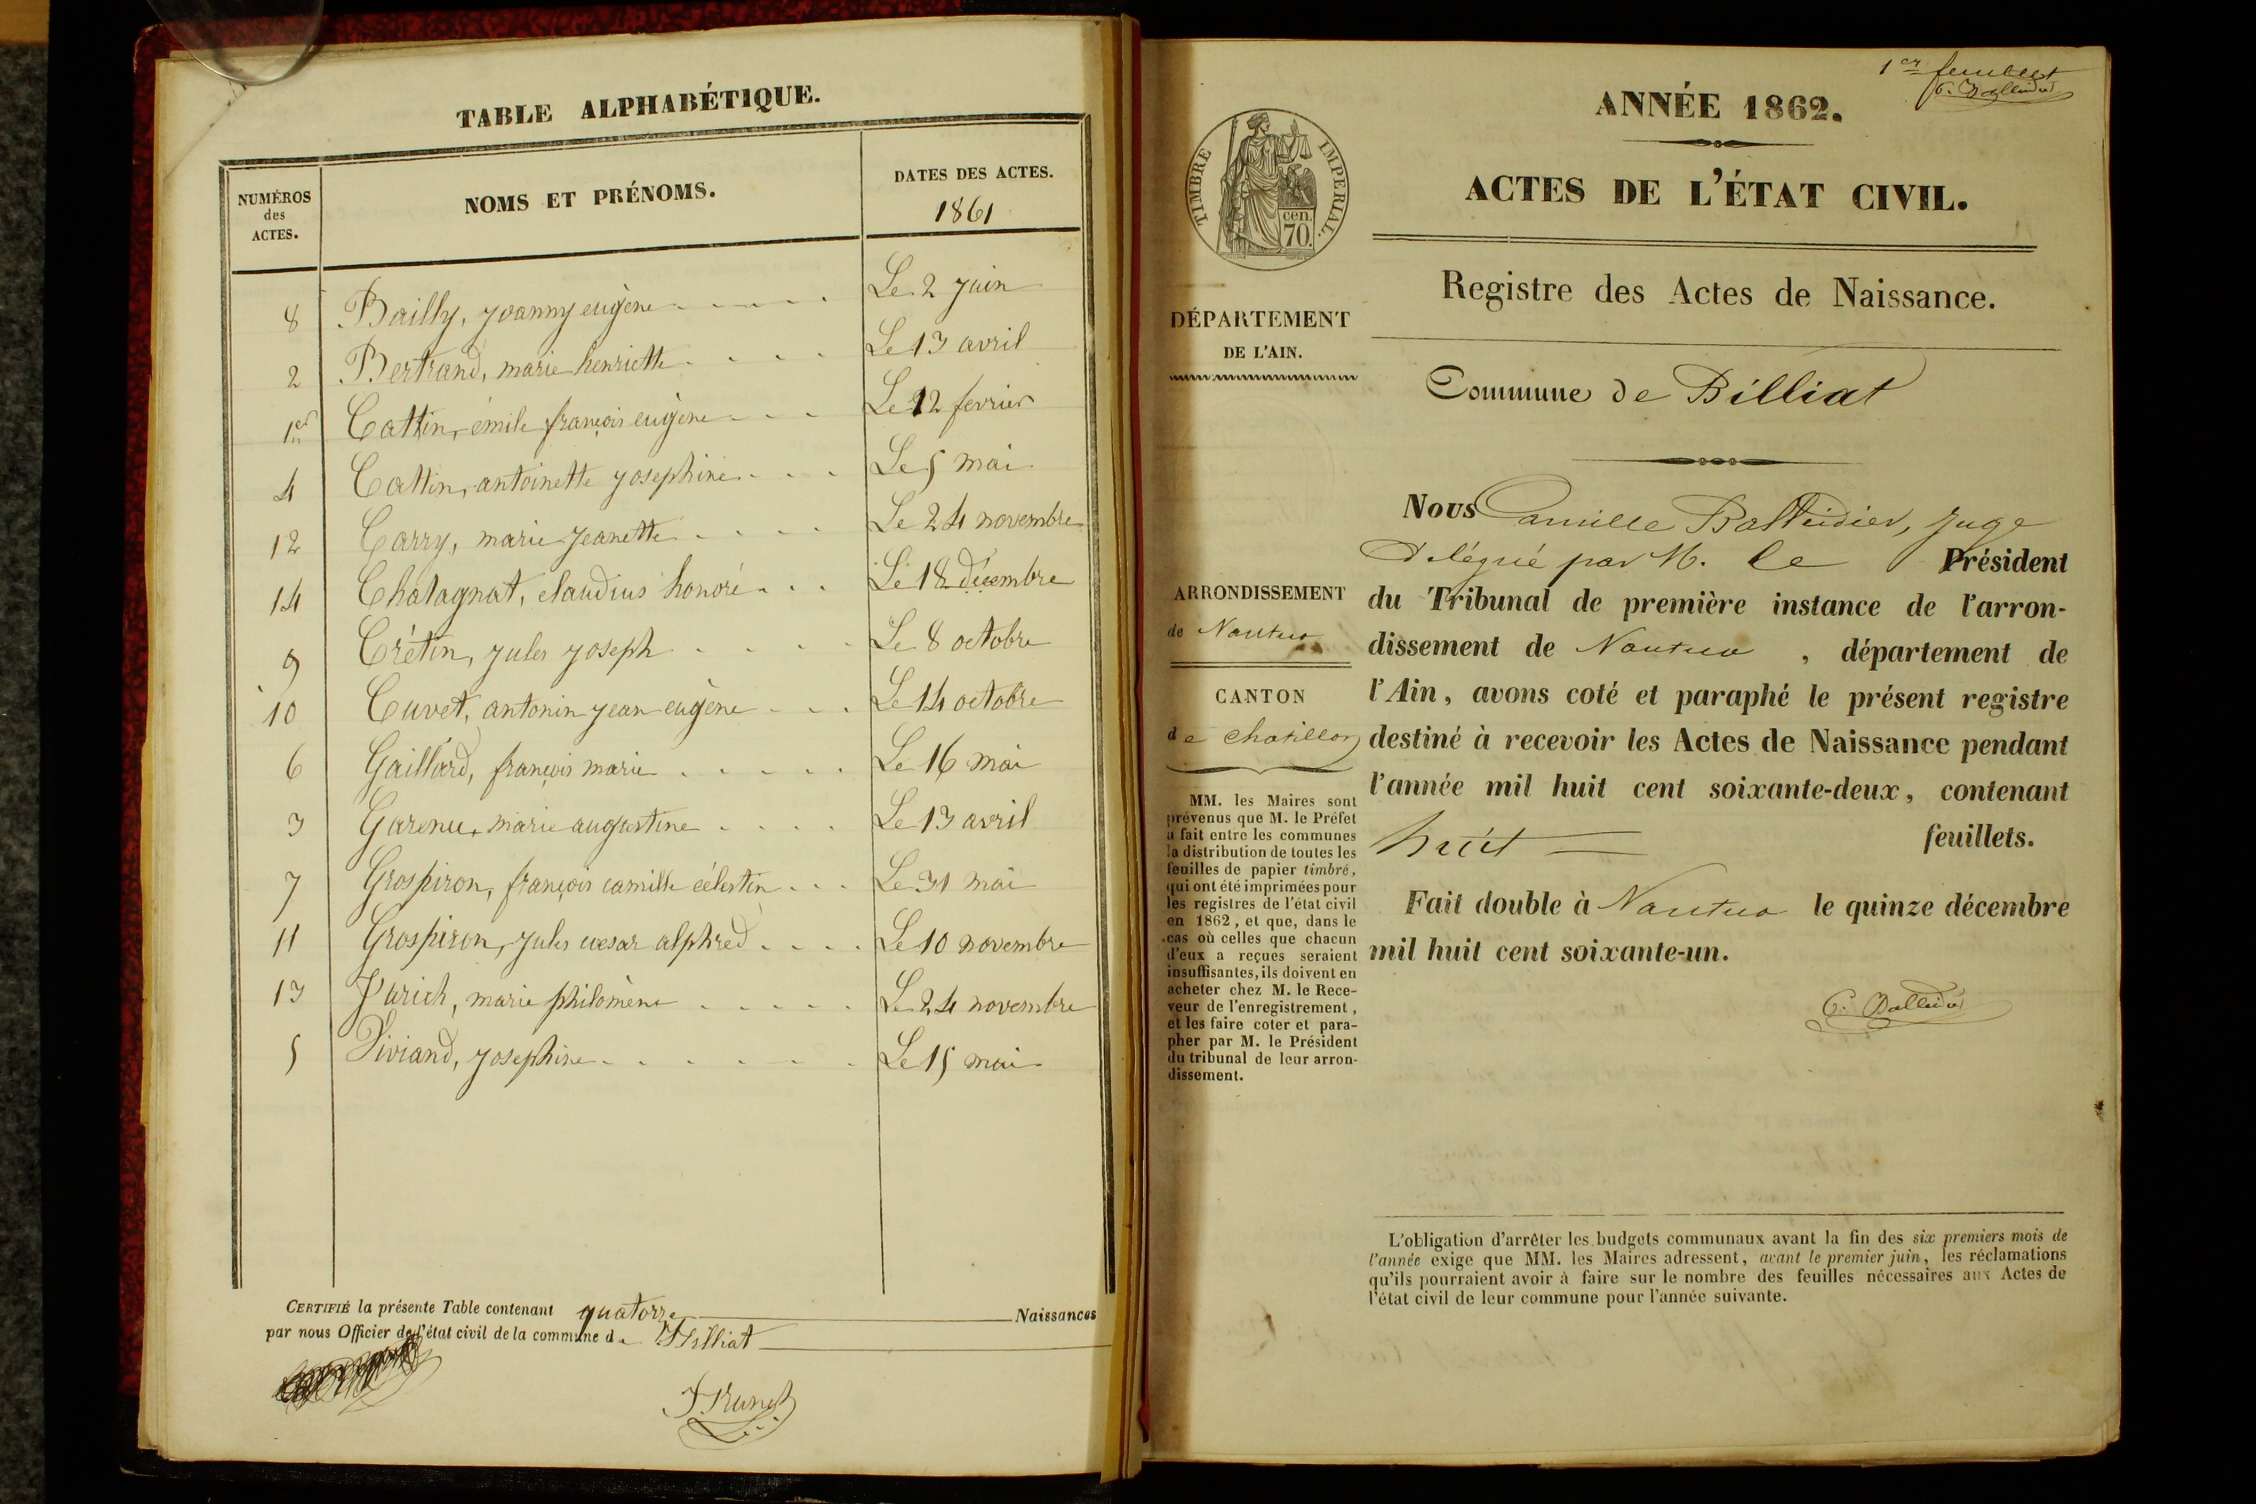 TABLE ALPHABÉTIQUE.
NUMÉROS des ACTES.
NOMS ET PRÉNOMS.
DATES DES ACTES.
1861
8 Bailly, joanny eugène Le 2 juin
2 Bertrand, marie henriette Le 13 avril
1er Cattin, émile françois eugène Le 12 fevrier
4 Cattin, antoinette josephine Le 5 mai
12 Carry, marie jeanette Le 24 novembre
14 Chatagnat, claudius honoré Le 18 décembre
9 Crétin, jules joseph Le 8 octobre
10 Cuvet, antonin jean eugène Le 14 octobre
6 Gaillard, françois marie Le 16 mai
3 Garenu, marie augustine Le 13 avril
7 Grospiron, françois camille célestin Le 31 mai
11 Grospiron, jules cesar alphred Le 10 novembre
13 marie philomène Le 24 novembre
5 Viviand, josephine Le 15 mai
CERTIFIÉ la présente Table contenant quatorze Naissances
par nous Officier de l'état civil de la commune de Billiat
1er feuillet
ANNÉE 1862.
TIMBRE IMPERIAL.
cen.
70.
ACTES DE L'ÉTAT CIVIL.
Registre des Actes de Naissance.
DÉPARTEMENT
DE L'AIN.
Commune de Billiat
ARRONDISSEMENT
de Nantua
CANTON
de Chatillon
MM. les Maires sont
prévenus que M. le Préfet
a fait entre les communes
la distribution de toutes les
feuilles de papier timbré,
qui ont été imprimées pour
les registres de l'état civil
en 1862, et que, dans le
cas où celles que chacun
d'eux a reçues seraient
insuffisantes, ils doivent en
acheter chez M. le Rece-
veur de l'enregistrement,
et les faire coter et para-
pher par M. le Président
du tribunal de leur arron-
dissement.
Nous Camille Juge
délégué par M. le Président
du Tribunal de première instance de l'arron-
dissement de Nantua, département de
l'Ain, avons coté et paraphé le présent registre
destiné à recevoir les Actes de Naissance pendant
l'année mil huit cent soixante-deux, contenant
huit feuillets.
Fait double à Nantua le quinze décembre
mil huit cent soixante-un.
L'obligation d'arrêter les budgets communaux avant la fin des six premiers mois de
l'année exige que MM. les Maires adressent, avant le premier juin, les réclamations
qu'ils pourraient avoir à faire sur le nombre des feuilles nécessaires aux Actes de
l'état civil de leur commune pour l'année suivante.